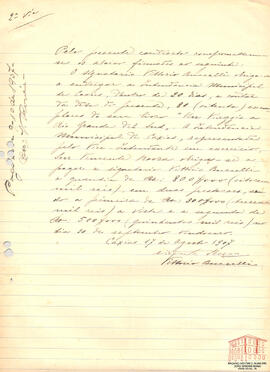 2ª Via
Pelo presente contracto compromettem-
se os abaixo firmados ao seguinte:
O signatario Vittorio Buccelli obriga-se
a entregar a Intendencia Municipal
de Caxias, dentro de 20 dias, a contar
da data do presente, 80 (oitenta) exem-
plares de seu livro "Un Viaggio a
Rio Grande del Sud". A Intendencia
Municipal de Caxias, representada
pelo Vice Intendente em exercicio,
Snr. Vincente Rovea obriga-se a
pagar a signatario Vittorio Buccelli
a quantia de Rs. 800$000 (oitocentos
mil reis), em duas prestações, sen-
do a primeira de Rs. 300$000 (trezentos
mil reis) a vista e a segunda de
Rs. 500$000 (quinhentos mil reis) no
dia 30 de septembro vindouro.
Caxias 17 de Agosto 1907
Vincente Rovea
Vittorio Buccelli